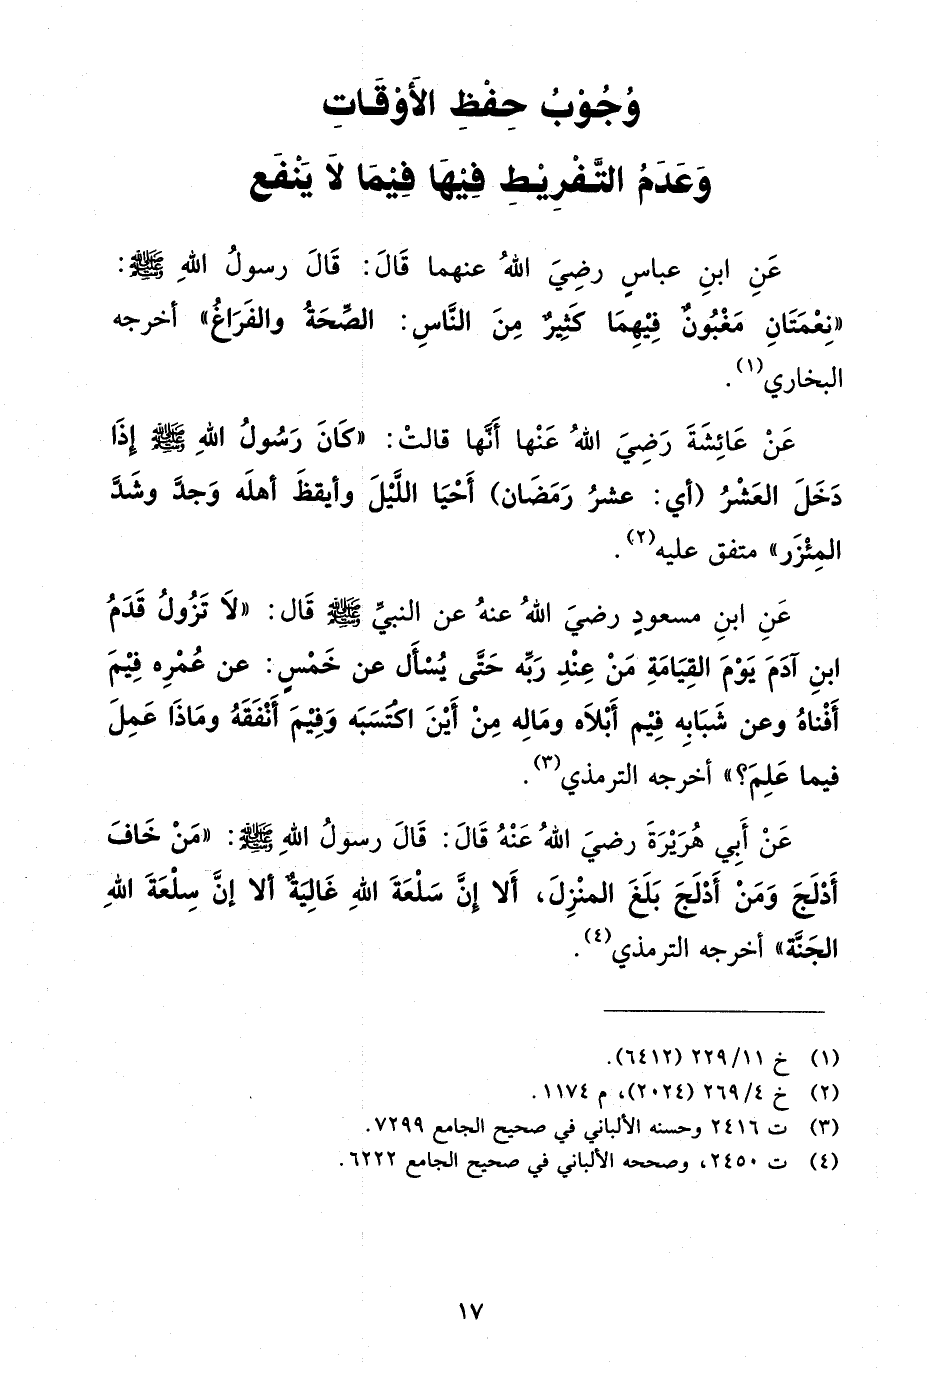 وُجُوْبُ حِفْظِ الأَوْقَاتِ
وَعَدَمُ التَّفْرِيْطِ فِيْهَا فِيْمَا لاَ يَنْفَع
عَنِ ابنِ عباسٍ رضِيَ اللهُ عنهما قَالَ: قَالَ رسولُ اللهِ ﷺ:
«نِعْمَتَانِ مَغْبُونٌ فِيْهِمَا كَثِيرٌ مِنَ النَّاسِ: الصِّحَةُ والفَرَاغُ» أخرجه
البخاري(١).
عَنْ عَائِشَةَ رَضِيَ اللهُ عَنْها أَنَّها قالتْ: «كَانَ رَسُولُ اللهِ ﷺ إِذَا
دَخَلَ العَشْرُ (أي: عشرُ رَمَضَان) أَحْيَا اللَّيْلَ وأيقظَ أهلَه وَجدَّ وشَدَّ
المِئْزَر» متفق عليه(٢).
عَنِ ابنِ مسعودٍ رضِيَ اللهُ عنهُ عن النبيِّ ﷺ قَال: «لاَ تَزُولُ قَدَمُ
ابنِ آدَمَ يَوْمَ القِيَامَةِ مَنْ عِنْدِ رَبِّه حَتَّى يُسْأَل عن خَمْسٍ: عن عُمْرِه فِيْمَ
أَفْناهُ وعن شَبَابِه فِيْم أَبْلاَه ومَالِه مِنْ أَيْنَ اكْتَسَبَه وَفِيْمَ أَنْفَقَهُ ومَاذَا عَمِلَ
فيما عَلِمَ؟» أخرجه الترمذي(٣).
عَنْ أَبِي هُرَيْرَةَ رضيَ اللهُ عَنْهُ قَالَ: قَالَ رسولُ اللهِ ﷺ: «مَنْ خَافَ
أَدْلَجَ وَمَنْ أَدْلَجَ بَلَغَ المنْزِلَ، أَلا إِنَّ سَلْعَةَ اللهِ غَالِيَةٌ ألا إنَّ سِلْعَةَ اللهِ
الجَنَّة» أخرجه الترمذي(٤).
(١) خ ١١/ ٢٢٩ (٦٤١٢).
(٢) خ ٤/ ٢٦٩ (٢٠٢٤)، م ١١٧٤.
(٣) ت ٢٤١٦ وحسنه الألباني في صحيح الجامع ٧٢٩٩.
(٤) ت ٢٤٥٠، وصححه الألباني في صحيح الجامع ٦٢٢٢.
١٧